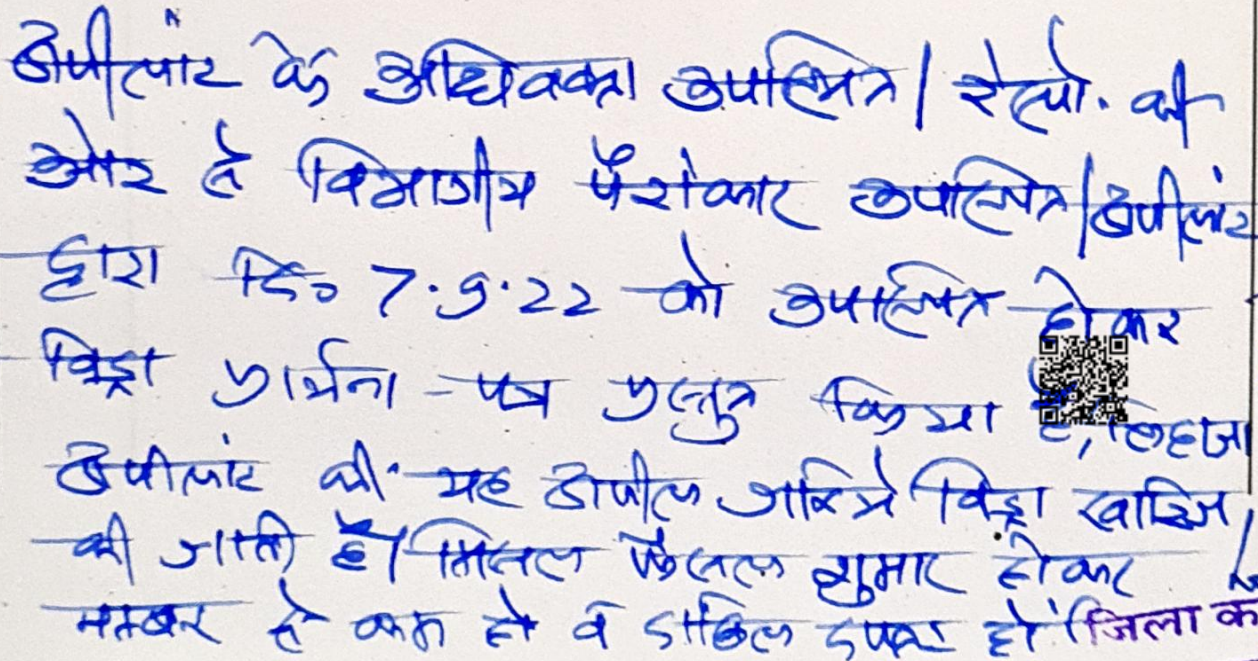 अपीलांट के अधिवक्ता उपस्थित। रेस्पो. की
ओर से विभागीय पैरोकार उपस्थित। अपीलांट
द्वारा दि० 7.9.22 को उपस्थित होकर
विड्रा प्रार्थना-पत्र प्रस्तुत किया है, लिहाजा
अपीलांट की यह अपील जरिये विड्रा खारिज
की जाती है। मिसल फैसल शुमार होकर
नम्बर से कम हो व दाखिल दफ्तर हो।
जिला क